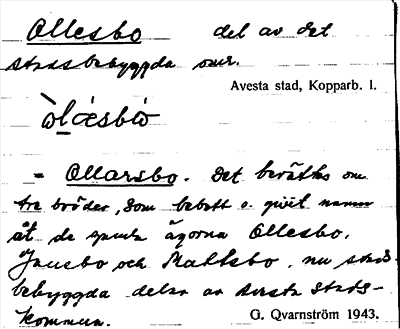 Ollesbo del av det
stadsbebyggda omr.
Avesta stad, Kopparb. l.
= Ollarsbo. Det berättas om
tre bröder, som bebott o. givit namn
åt de spridda ägorna Ollesbo,
Jansbo och Mattsbo, nu stads-
bebyggda delar av Avesta stads-
kommun.
G. Qvarnström 1943.